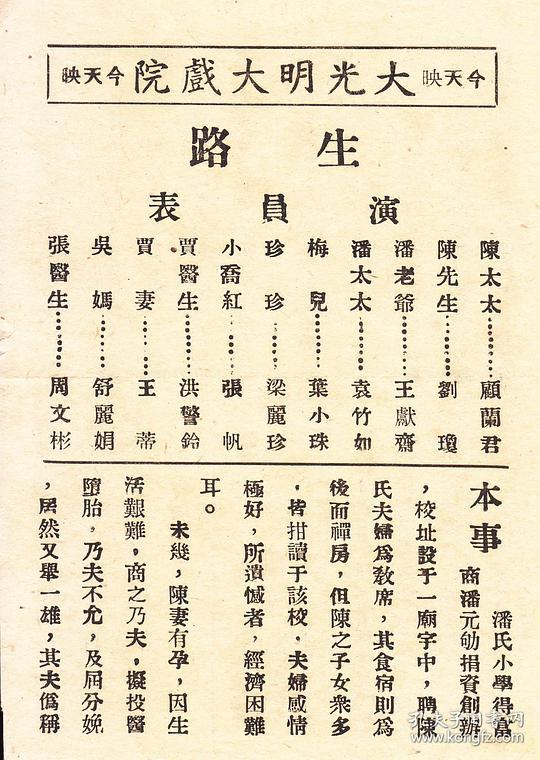 今天映 大光明大戲院 今天映
生路
演員表
陳太太………顧蘭君
陳先生………劉瓊
潘老爺………王獻齋
潘太太………袁竹如
梅兒………葉小珠
珍珍………梁麗珍
小喬紅………張帆
賈醫生………洪警鈴
賈妻………王蒂
吳媽………舒麗娟
張醫生………周文彬
本事
潘氏小學得富
商潘元劬捐資創辦
，校址設于一廟宇中，聘陳
氏夫婦爲敎席，其食宿則爲
後面禪房，但陳之子女衆多
，皆拑讀于該校，夫婦感情
極好，所遺憾者，經濟困難
耳。
未幾，陳妻有孕，因生
活艱難，商之乃夫，擬投醫
墮胎，乃夫不允，及屆分娩
，居然又舉一雄，其夫僞稱
孔夫子旧书网
www.kongfz.com